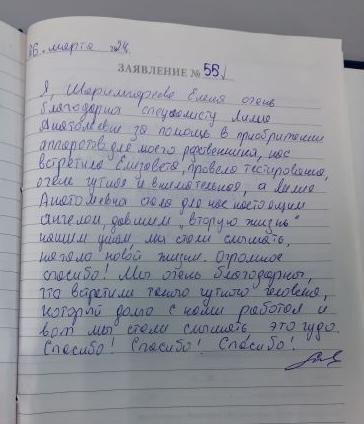 06. марта 24.
ЗАЯВЛЕНИЕ № 55
Я, Елена очень
благодарна специалисту Лилие
Анатольевне за помощь в приобретении
аппаратов для моего родственника, нас
встретила Елизавета, провела тестирование,
очень чуткая и внимательная, а Лилия
Анатольевна стала для нас настоящим
ангелом, давшим "вторую жизнь"
нашим ушам, мы стали слышать,
начало новой жизни. Огромное
спасибо! Мы очень благодарны,
что встретили такого чуткого человека,
который долго с нами работал и
вот мы стали слышать, это чудо.
Спасибо! Спасибо! Спасибо!